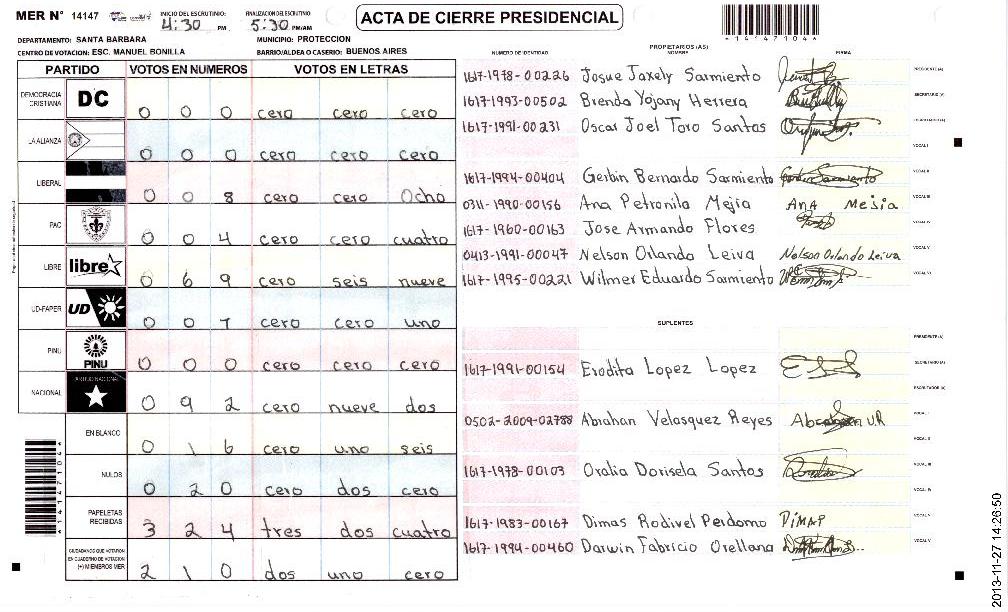 MER N° 14147 INICIO DEL ESCRUTINIO: 4:30 PM FINALIZACION DEL ESCRUTINIO: 5:30 PM/AM ACTA DE CIERRE PRESIDENCIAL *14147104*
DEPARTAMENTO: SANTA BARBARA MUNICIPIO: PROTECCION
CENTRO DE VOTACION: ESC. MANUEL BONILLA BARRIO/ALDEA O CASERIO: BUENOS AIRES
PARTIDO VOTOS EN NUMEROS VOTOS EN LETRAS
DEMOCRACIA CRISTIANA DC 0 0 0 cero cero cero
LA ALIANZA 0 0 0 cero cero cero
LIBERAL 0 0 8 cero cero Ocho
PAC 0 0 4 cero cero cuatro
LIBRE libre 0 6 9 cero seis nueve
UD-FAPER UD 0 0 1 cero cero uno
PINU PINU 0 0 0 cero cero cero
NACIONAL PARTIDO NACIONAL 0 9 2 cero nueve dos
EN BLANCO 0 1 6 cero uno seis
NULOS 0 2 0 cero dos cero
PAPELETAS RECIBIDAS 3 2 4 tres dos cuatro
CIUDADANOS QUE VOTARON EN CUADERNO DE VOTACION (+) MIEMBROS MER 2 1 0 dos uno cero
PROPIETARIOS (AS)
NUMERO DE IDENTIDAD NOMBRE FIRMA
1617-1978-00226 Josue Jaxely Sarmiento PRESIDENTE (A)
1617-1993-00502 Brenda Yojany Herrera SECRETARIO (A)
1617-1991-00231 Oscar Joel Toro Santos ESCRUTADOR (A)
VOCAL I
1617-1994-00404 Gerbin Bernardo Sarmiento VOCAL II
0311-1990-00156 Ana Petronila Mejia Ana Mejia VOCAL III
1617-1960-00163 Jose Armando Flores VOCAL IV
0413-1991-00047 Nelson Orlando Leiva Nelson Orlando Leiva VOCAL V
1617-1995-00221 Wilmer Eduardo Sarmiento VOCAL VI
SUPLENTES
PRESIDENTE (A)
1617-1991-00154 Erodita Lopez Lopez SECRETARIO (A)
ESCRUTADOR (A)
0502-2009-02788 Abrahan Velasquez Reyes VOCAL I
VOCAL II
1617-1978-00103 Oralia Dorisela Santos VOCAL III
VOCAL IV
1617-1983-00167 Dimas Rodivel Perdomo VOCAL V
1617-1994-00460 Darwin Fabricio Orellana
2013-11-27 14:26:50